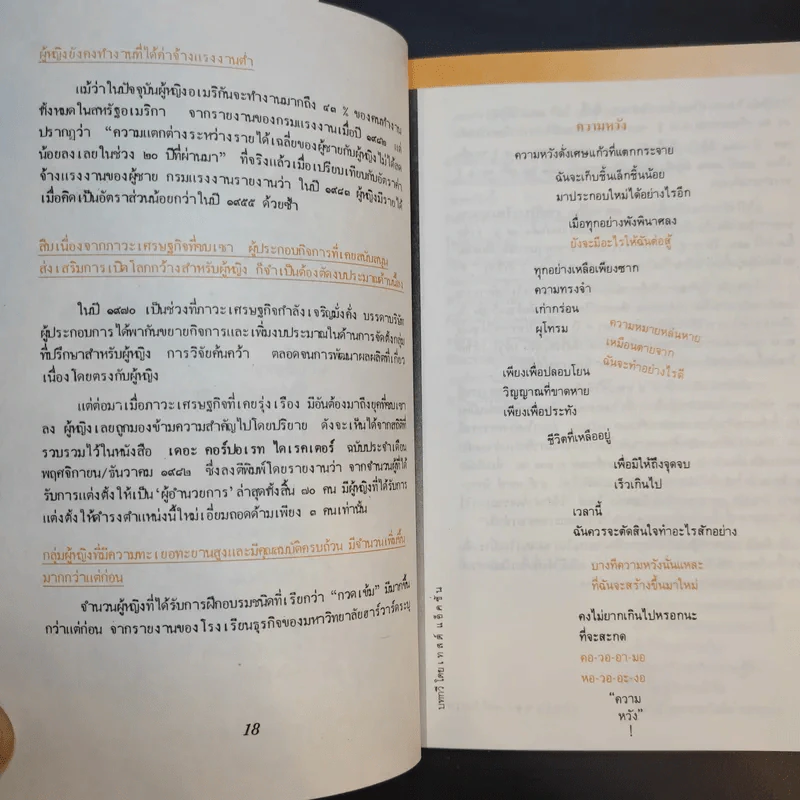 ผู้หญิงยังคงทำงานที่ได้ค่าจ้างแรงงานต่ำ
แม้ว่าในปัจจุบันผู้หญิงอเมริกันจะทำงานมากถึง ๔๓ % ของคนทำงาน
ทั้งหมดในสหรัฐอเมริกา จากรายงานของกรมแรงงานเมื่อปี ๑๙๘๒ แต่
ปรากฏว่า “ความแตกต่างระหว่างรายได้เฉลี่ยของผู้ชายกับผู้หญิงไม่ได้ลด
น้อยลงเลยในช่วง ๒๐ ปีที่ผ่านมา” ที่จริงแล้วเมื่อเปรียบเทียบกับอัตราค่า
จ้างแรงงานของผู้ชาย กรมแรงงานรายงานว่า ในปี ๑๙๘๓ ผู้หญิงมีรายได้
เมื่อคิดเป็นอัตราส่วนน้อยกว่าในปี ๑๙๕๕ ด้วยซ้ำ
สืบเนื่องจากภาวะเศรษฐกิจที่ซบเซา ผู้ประกอบกิจการที่เคยสนับสนุน
ส่งเสริมการเปิดโลกกว้างสำหรับผู้หญิง ก็จำเป็นต้องตัดงบประมาณด้านนี้ลง
ในปี ๑๙๗๐ เป็นช่วงที่ภาวะเศรษฐกิจกำลังเจริญมั่งคั่ง บรรดาบริษัท
ผู้ประกอบการได้พากันขยายกิจการและเพิ่มงบประมาณในด้านการจัดตั้งกลุ่ม
ที่ปรึกษาสำหรับผู้หญิง การวิจัยค้นคว้า ตลอดจนการพัฒนาผลผลิตที่เกี่ยว
เนื่องโดยตรงกับผู้หญิง
แต่ต่อมาเมื่อภาวะเศรษฐกิจที่เคยรุ่งเรือง มีอันต้องมาถึงยุคที่ซบเซา
ลง ผู้หญิงเลยถูกมองข้ามความสำคัญไปโดยปริยาย ดังจะเห็นได้จากสถิติที่
รวบรวมไว้ในหนังสือ เดอะ คอร์ปอเรท ไดเรคเตอร์ ฉบับประจำเดือน
พฤศจิกายน/ธันวาคม ๑๙๘๒ ซึ่งลงตีพิมพ์โดยรายงานว่า จากจำนวนผู้ที่ได้
รับการแต่งตั้งให้เป็น ‘ผู้อำนวยการ’ ล่าสุดทั้งสิ้น ๗๐ คน มีผู้หญิงที่ได้รับการ
แต่งตั้งให้ดำรงตำแหน่งนี้ใหม่เอี่ยมถอดด้ามเพียง ๓ คนเท่านั้น
กลุ่มผู้หญิงที่มีความทะเยอทะยานสูงและมีคุณสมบัติครบถ้วน มีจำนวนเพิ่มขึ้น
มากกว่าแต่ก่อน
จำนวนผู้หญิงที่ได้รับการฝึกอบรมชนิดที่เรียกว่า “กวดเข้ม” มีมากขึ้น
กว่าแต่ก่อน จากรายงานของโรงเรียนธุรกิจของมหาวิทยาลัยฮาร์วาร์ดระบุ
18
ความหวัง
ความหวังดั่งเศษแก้วที่แตกกระจาย
ฉันจะเก็บชิ้นเล็กชิ้นน้อย
มาประกอบใหม่ได้อย่างไรอีก
เมื่อทุกอย่างพังพินาศลง
ยังจะมีอะไรให้ฉันต่อสู้
ทุกอย่างเหลือเพียงซาก
ความทรงจำ
เก่ากร่อน
ผุโทรม
ความหมายหล่นหาย
เหมือนตายจาก
ฉันจะทำอย่างไรดี
เพียงเพื่อปลอบโยน
วิญญาณที่ขาดหาย
เพียงเพื่อประทัง
ชีวิตที่เหลืออยู่
เพื่อมิให้ถึงจุดจบ
เร็วเกินไป
เวลานี้
ฉันควรจะตัดสินใจทำอะไรสักอย่าง
บางทีความหวังนั่นแหละ
ที่ฉันจะสร้างขึ้นมาใหม่
คงไม่ยากเกินไปหรอกนะ
ที่จะสะกด
คอ-วอ-อา-มอ
หอ-วอ-อะ-งอ
“ความ
หวัง”
!
บทกวี โดย เทสต์ แอ็คชั่น